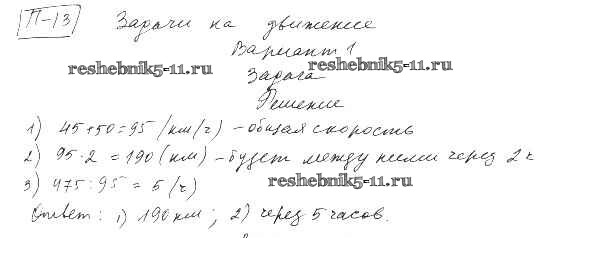 П-13 Задачи на движение
Вариант 1
reshebnik5-11.ru reshebnik5-11.ru
Задача
Решение
1) 45+50=95 (км/ч) – общая скорость
2) 95·2 = 190 (км) – будет между ними через 2 ч
reshebnik5-11.ru
3) 475:95 = 5 (ч)
Ответ: 1) 190 км; 2) через 5 часов.